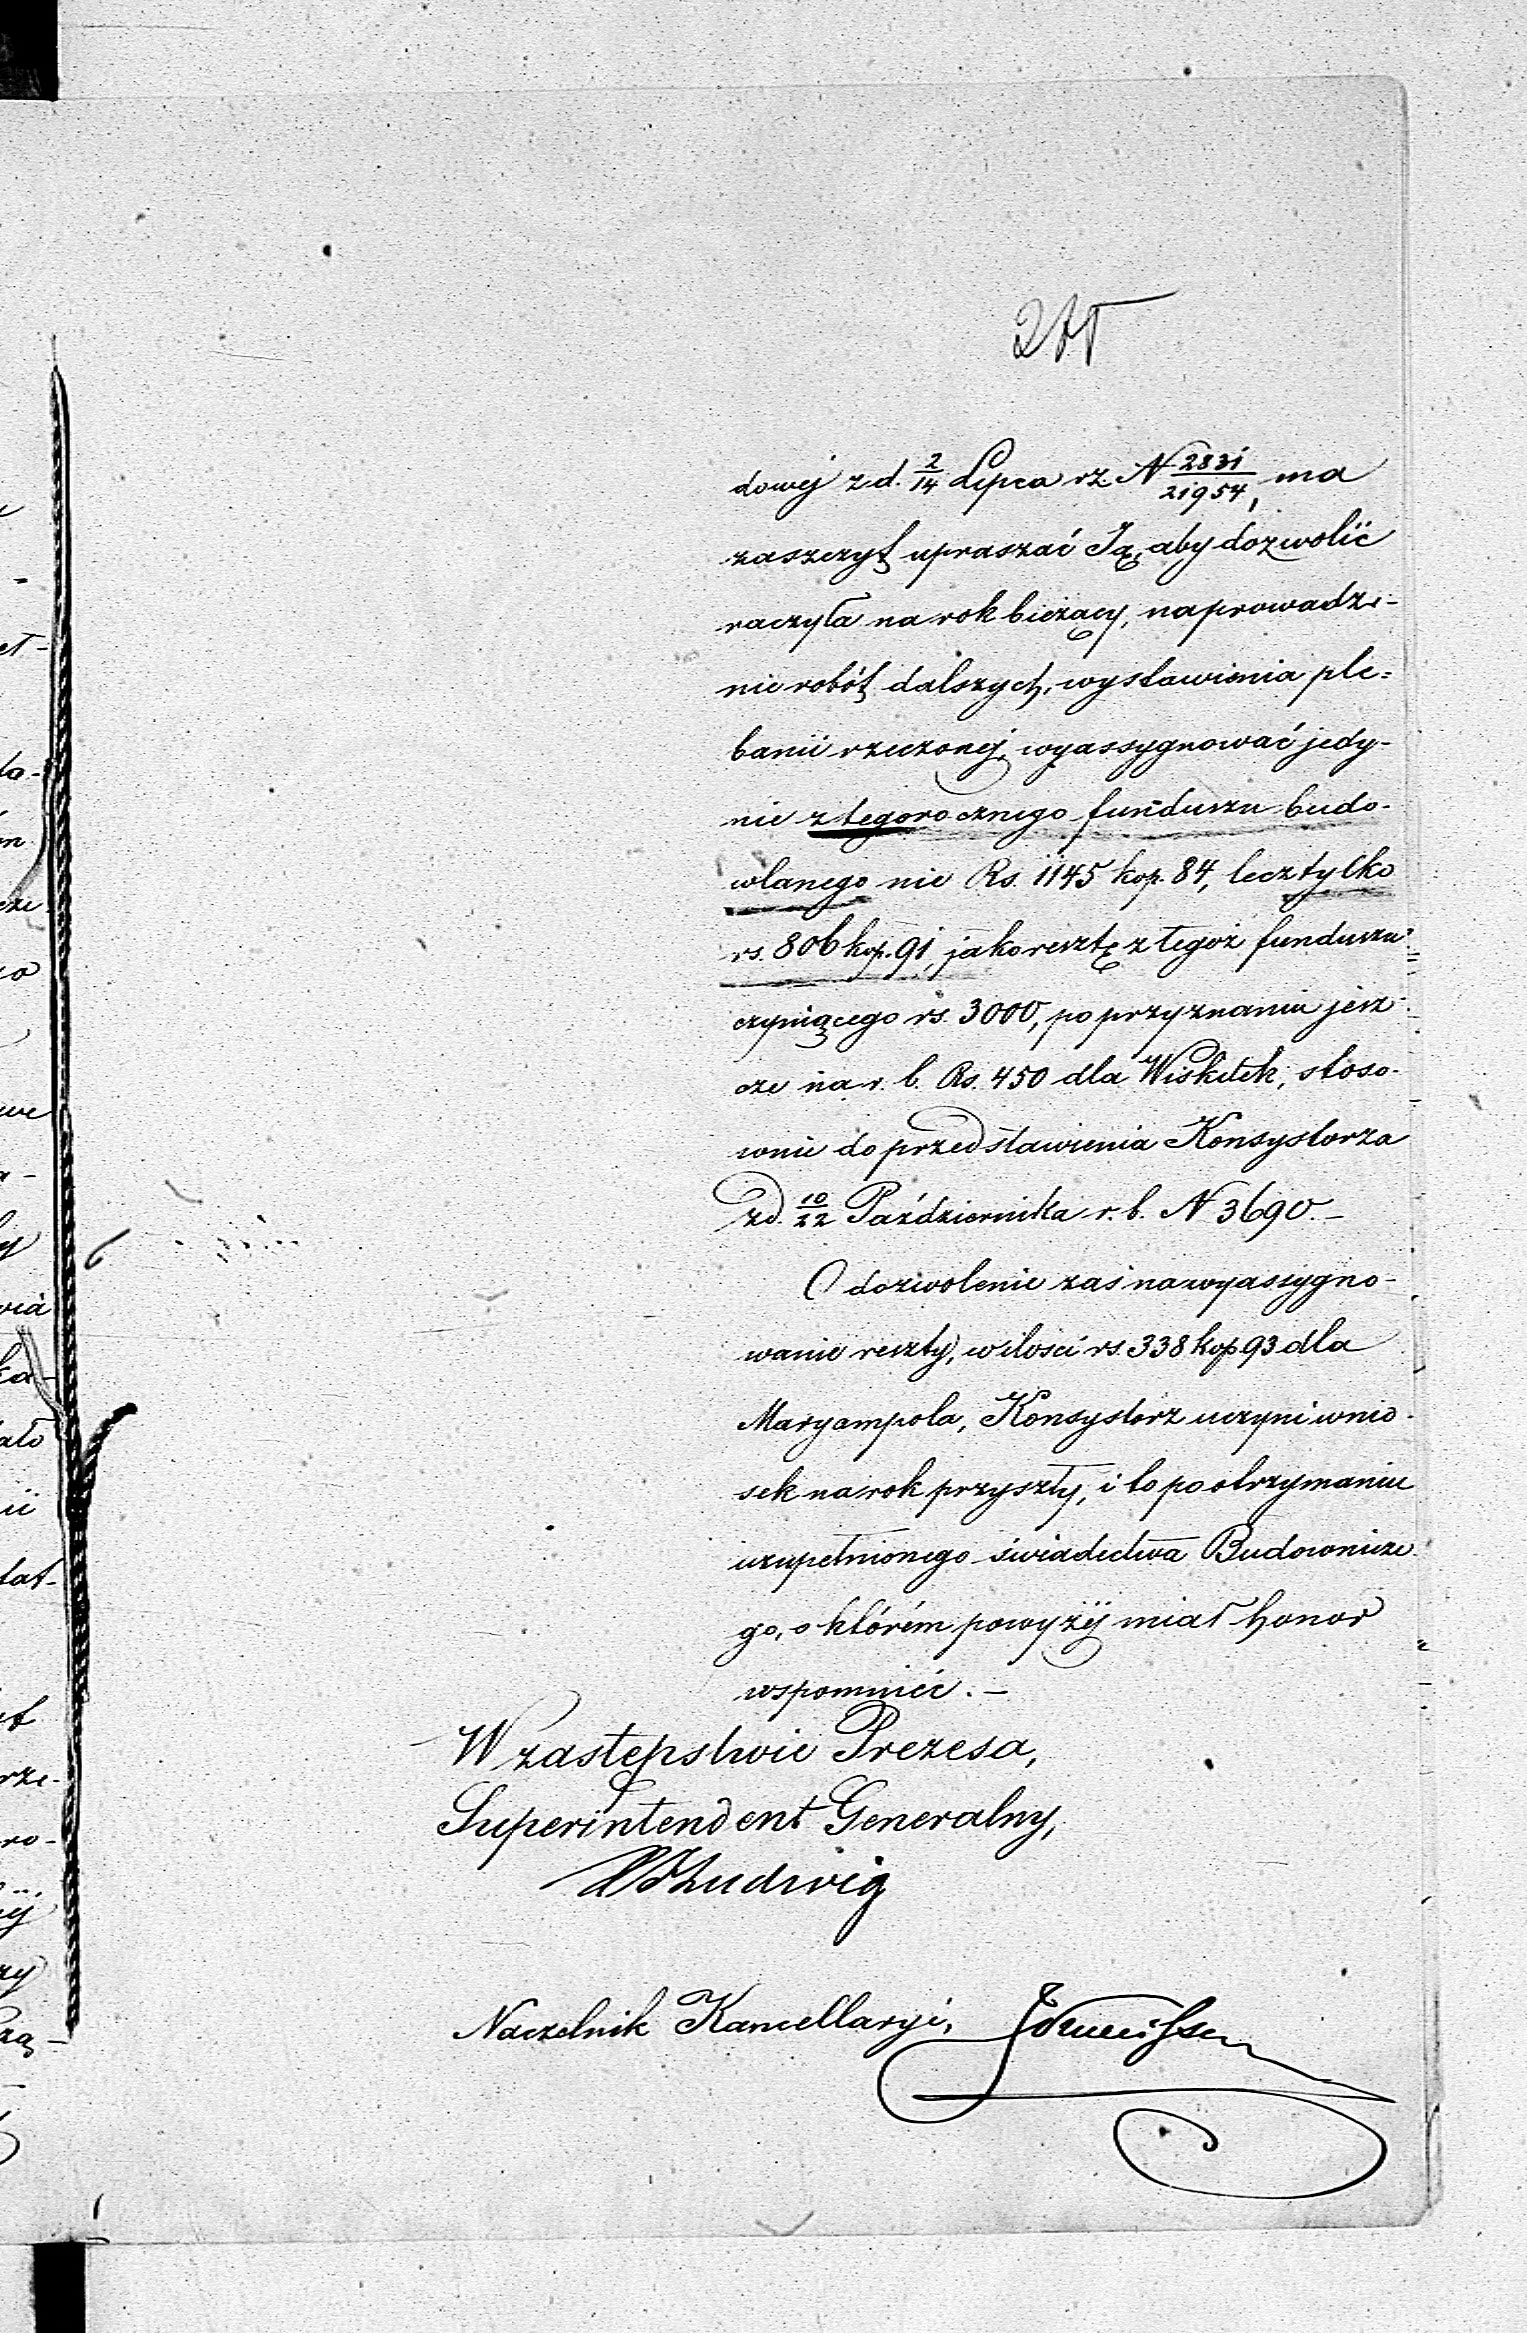 dowej z d. 2/14 Lipca rz. N 2831/21954, ma
zaszczyt upraszać Ją, aby dozwolić
raczyła na rok bieżący, na prowadze-
nie robót dalszych, wystawienia ple=
banii rzeczonej, wyassygnować jedy-
nie z tegorocznego funduszu budo-
wlanego nie Rs. 1145 kop. 84, lecz tylko
rs. 806 kop. 91, jako resztę z tegoż funduszu
czyniącego rs. 3000, po przyznaniu jesz-
cze na r. b. Rs. 450 dla Wiskitek, stoso-
wnie do przedstawienia Konsystorza
z d. 10/22 Października r. b. N 3690.—
O dozwolenie zaś na wyassygno-
wanie reszty, w ilości rs. 338 kop 93 dla
Maryampola, Konsystorz uczyni wnio-
sek na rok przyszły, i to po otrzymaniu
uzupełnionego świadectwa Budownicze-
go, o którém powyżéj miał honor
wspomnieć.—
W zastępstwie Prezesa,
Superintendent Generalny,
Ludwig
Naczelnik Kancellaryi,